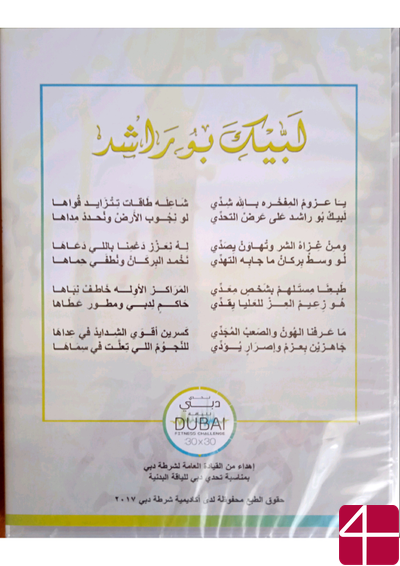 لبيك بو راشد
يا عزوم المفخره بالله شدي شاعله طاقات تتزايد قواها
لبيك بو راشد على عرض التحدي لو نجوب الأرض ونحدد مداها
ومن غزاه الشر ونهاون بصدي له نعزز دعمنا باللي دعاها
لو وسط بركان ما جابه التهدي نخمد البركان ونطفي حماها
طبعنا مستلهم بشخص معدي المراكز الأوله خاطفت نباها
هو زعيم العز للعليا يقدي حاكم لدبي ومطور عطاها
ما عرفنا الهون والصعب المجدي كسرين أقوى الشدايد في عداها
جاهزين بعزم وإصرار يودي للنجوم اللي تعلت في سماها
تحدي
دبي
للياقة
DUBAI
FITNESS CHALLENGE
30x30
إهداء من القيادة العامة لشرطة دبي
بمناسبة تحدي دبي للياقة البدنية
حقوق الطبع محفوظة لدى أكاديمية شرطة دبي ٢٠١٧